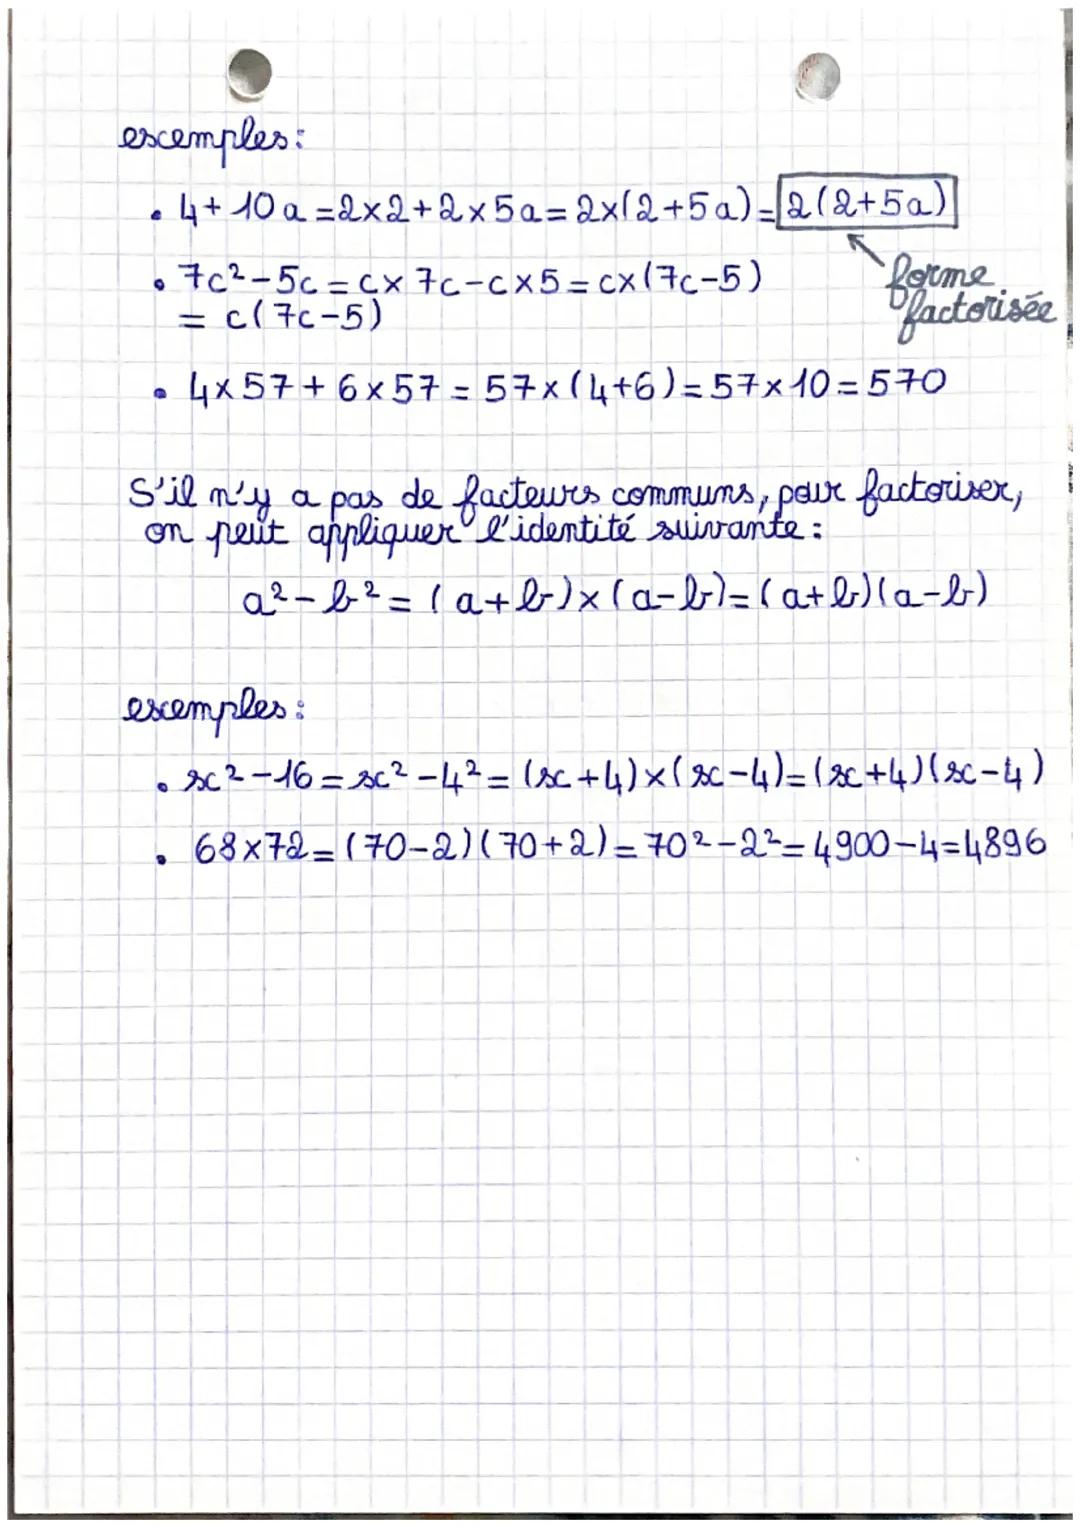 exemples:
• 4+10a=2×2+2×5a=2×(2+5a)=2(2+5a)
forme
factorisée
• 7c²-5c=c×7c-c×5=c×(7c-5)
= c(7c-5)
• 4×57+6×57=57×(4+6)=57×10=570
S'il n'y a pas de facteurs communs, pour factoriser,
on peut appliquer l'identité suivante:
a²-b²=(a+b)×(a-b)=(a+b)(a-b)
exemples:
• x²-16=x²-4²=(x+4)×(x-4)=(x+4)(x-4)
• 68×72=(70-2)(70+2)=70²-2²=4900-4=4896